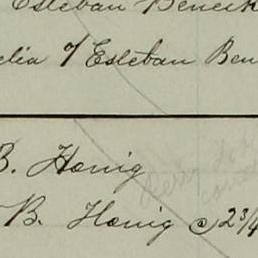 Esteban Beneck
elia of Esteban Ben
B. Honig
B. Honig @ 2 3/4